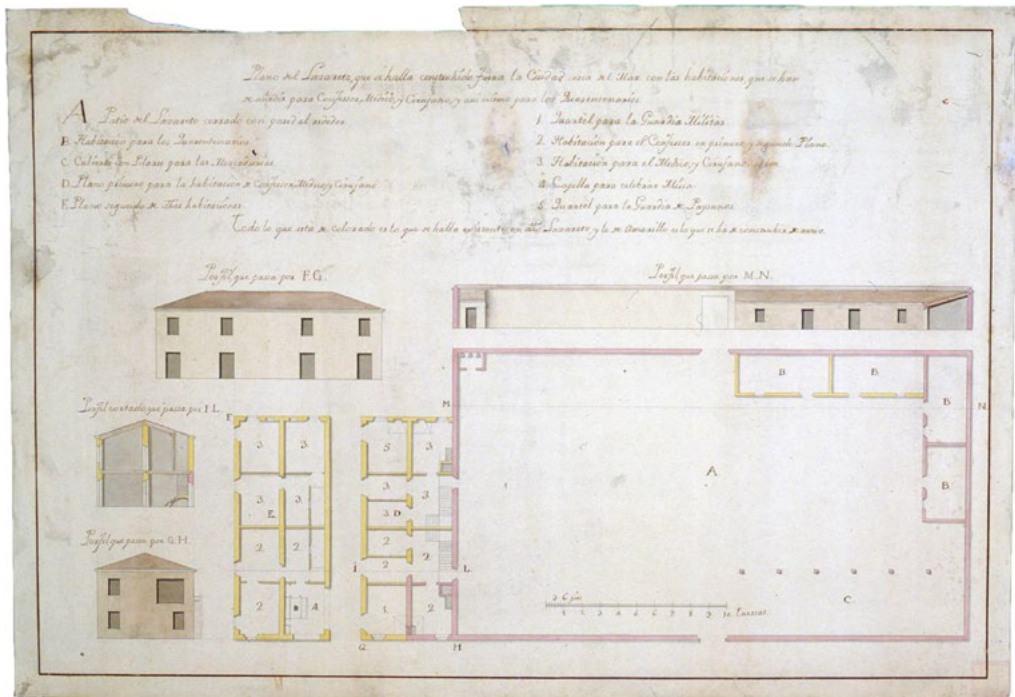 Plano del Lazareto, que se halla construhido fuera la Ciudad cerca del Mar con las habitaciones, que se han
de añadir para Confessor, Medico, y Cirujano, y assi mismo para los Quarentenarios.
A Patio del Lazareto cerrado con pared al rededor
B. Habitacion para los Quarentenarios.
C. Cubierto con Pilares para las Mercadurias
D. Plano primero para la habitacion de Confessor, Medico, y Cirujano
E. Plano segundo de dhas habitaciones.
1. Quartel para la Guardia Militar.
2. Habitacion para el Confessor en primero, y segundo Plano.
3. Habitacion para el Medico, y Cirujano
4. Capilla para celebrar Missa.
5. Quartel para la Guardia de Paysanos
Todo lo que está de colorado es lo que se halla en dho Lazareto, y lo de Amarillo es lo que se ha de construhir de nuevo.
Perfil que passa por F.G.
Perfil que passa por M.N.
Perfil cortado que passa por I.L.
Perfil que passa por G.H.
F
M.
N.
B.
B.
B
B.
3.
3.
5.
3.
3.
3.
3.
3
3.
E.
D
2.
2.
2.
2.
2.
I
L.
2.
4.
1.
2.
G
H
A
C.
1 2 3 4 5 6 7 8 9 10 Tuessas.